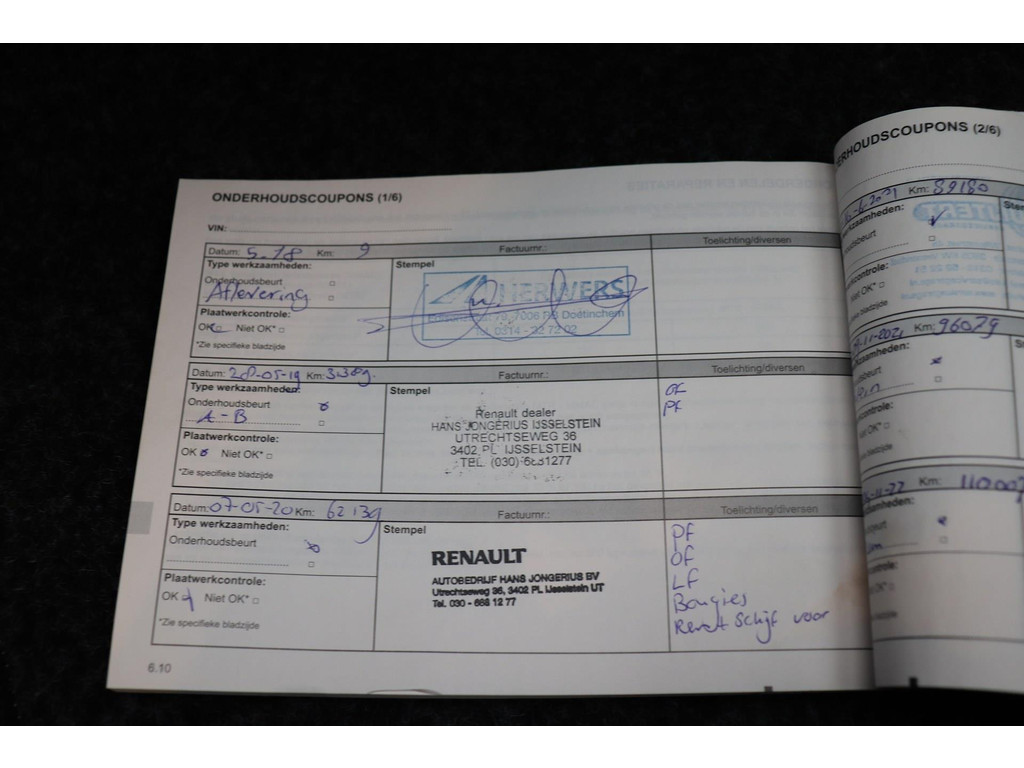 ONDERHOUDSCOUPONS (1/6)
VIN:
Datum: 5-18 Km: 9 Factuurnr.: Toelichting/diversen
Type werkzaamheden:
Onderhoudsbeurt
Aflevering
Plaatwerkcontrole:
OK Niet OK*
*Zie specifieke bladzijde
Stempel
HERWERS
7006 RB Doetinchem
Tel. 0314 - 22 72 02
Datum: 28-05-19 Km: Factuurnr.: Toelichting/diversen
Type werkzaamheden:
Onderhoudsbeurt
A-B
Plaatwerkcontrole:
OK Niet OK*
*Zie specifieke bladzijde
Stempel
Renault dealer
HANS JONGERIUS IJSSELSTEIN
UTRECHTSEWEG 36
3402 PL IJSSELSTEIN
TEL. (030)-6881277
OF
PF
Datum: 07-05-20 Km: 62139 Factuurnr.: Toelichting/diversen
Type werkzaamheden:
Onderhoudsbeurt
Plaatwerkcontrole:
OK Niet OK*
*Zie specifieke bladzijde
Stempel
RENAULT
AUTOBEDRIJF HANS JONGERIUS BV
Utrechtseweg 36, 3402 PL IJsselstein UT
Tel. 030 - 688 12 77
PF
OF
LF
Bougies
Schijf voor
6.10
ERHOUDSCOUPONS (2/6)
2021 Km: 89180
rkzaamheden:
dsbeurt
kcontrole:
iet OK*
bladzijde
11-2021 Km: 96079
kzaamheden:
beurt
controle:
OK*
bladzijde
11-22 Km: 110007
zaamheden:
ontrole:
OK*
bladzijde